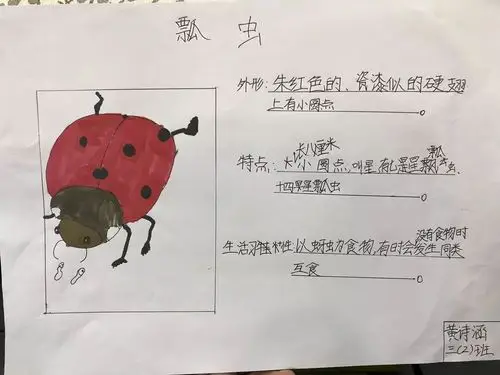 瓢虫
外形：朱红色的、瓷漆似的硬翅
上有小圆点
长八厘米
瓢
特点：大小圆点,叫星
十四星瓢虫
没有食物时
生活习性：以蚜虫为食物,有时会发生同类
互食
黄诗涵
三(2)班